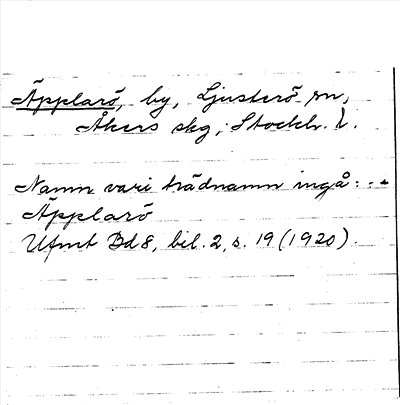 Äpplarö, by, Ljusterö sn,
Åkers skg, Stockh. l.
Namn vari trädnamn ingå: --
Äpplarö
Utfmt Bd 8, bil. 2, s. 19 (1920).